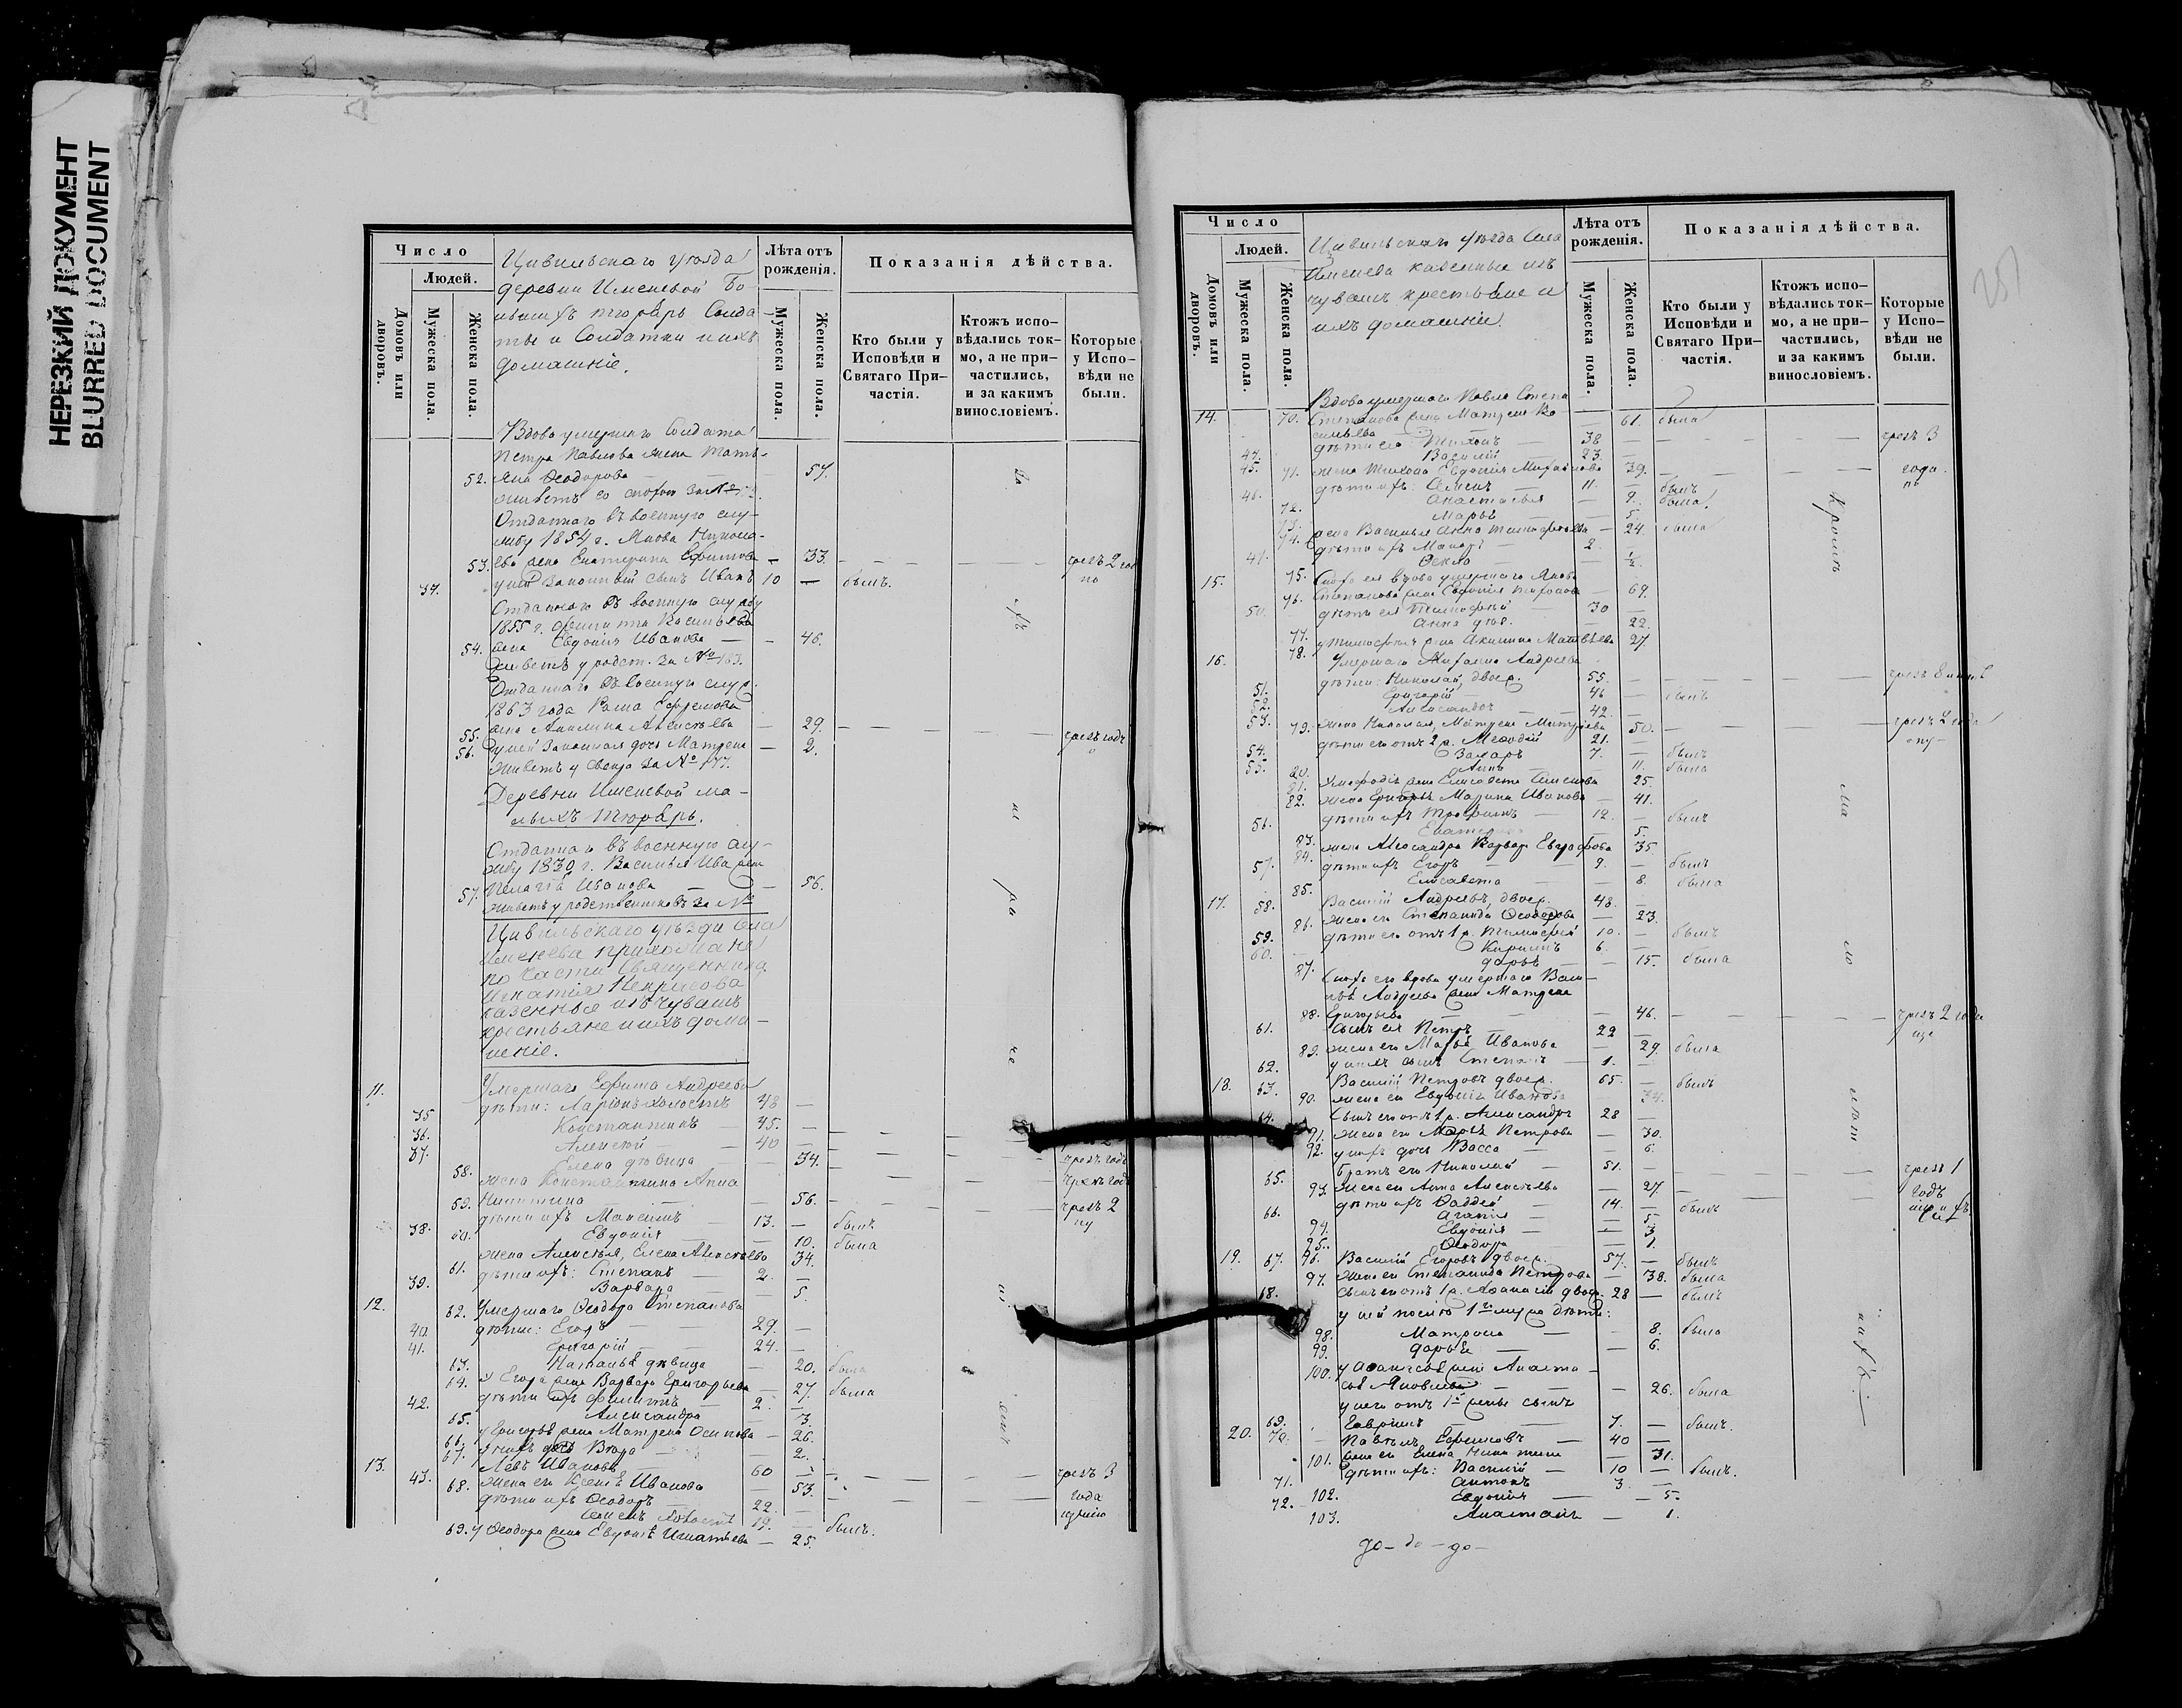 НЕРЕЗКИЙ ДОКУМЕНТ
BLURRED DOCUMENT
Число
Людей.
Домовъ или дворовъ.
Мужеска пола.
Женска пола.
Цивильскаго уѣзда
деревни Именевой Бо-
льшихъ Тюрарь Солда-
ты и Солдатки и ихъ
домашніе.
Лѣта отъ рожденія.
Мужеска пола.
Женска пола.
Показанія дѣйства.
Кто были у Исповѣди и Святаго При-частія.
Ктожъ испо-вѣдались ток-мо, а не при-частились, и за какимъ винословіемъ.
Которые у Испо-вѣди не были.
Вдова умершаго Солдата
Петра Павлова жена Татья-
52. яна Ѳеодорова — 57.
живетъ со снохою за №
Отданнаго въ военную слу-
жбу 1854 г. Якова Никола-
53. ева жена Екатерина Ефимова — 33. чрезъ 2 год
37. у ней законный сынъ Иванъ 10 — былъ. по
Отданнаго въ военную службу
1855 г. Филиппа Васильева
54. жена Евдокія Иванова — 46.
живетъ у родст. за № 183.
Отданнаго въ военную служ.
1863 года Ефремова
55. жена Акилина Алексѣева — 29. чрезъ годъ
56. у ней законная дочь Матрена — 2.
живетъ у свекра за № 177.
Деревни Именевой Ма-
лыхъ Тюрарь.
Отданнаго въ военную слу-
жбу 1830 г. Василья Ива жена
57. Пелагія Иванова — 56.
живетъ у родственниковъ за №
Цивильскаго уѣзда села
Именева прихожане
по части Священника
Игнатія Некрасова
казенные изъ чувашъ
крестьяне и ихъ дома-
шніе.
11. Умершаго Ефима Андреева
35 дѣти: Ларіонъ холостъ 48 —
36. Константинъ — 45. —
37. Алексѣй — 40 —
58. Елена дѣвица — 34. чрезъ годъ
жена Константина Анна чрезъ годъ
59. Никитина — 56. чрезъ 2
38. дѣти ихъ Максимъ 13. — былъ
60. Евдокія — 10. была
61. жена Алексѣя, Елена Алексѣева 34.
39. дѣти ихъ: Степанъ — 2. —
62. Варвара — 5.
12. Умершаго Ѳеодора Степанова
40. дѣти: Егоръ — 29. —
41. Григорій — 24. —
63. Наталья дѣвица — 20. была
64. У Егора жена Варвара Григорьева — 27. была
42. дѣти ихъ Филиппъ 2. —
65. Александра — 3.
66. у Григорья жена Матрена Осипова — 26.
67. у нихъ дочь Вѣра — 2.
13. 43. Левъ Ивановъ 60 — чрезъ 3
68. жена его Ксенія Иванова — 53. года
дѣти ихъ Ѳеодоръ — 22.
Семенъ холостъ 19. — былъ.
69. у Ѳеодора жена Евдокія Игнатьева — 25.
Число
Людей.
Домовъ или дворовъ.
Мужеска пола.
Женска пола.
Цивильскаго уѣзда Села
Именева казенные изъ
чувашъ крестьяне и
ихъ домашніе.
Лѣта отъ рожденія.
Мужеска пола.
Женска пола.
Показанія дѣйства.
Кто были у Исповѣди и Святаго При-частія.
Ктожъ испо-вѣдались ток-мо, а не при-частились, и за какимъ винословіемъ.
Которые у Испо-вѣди не были.
25
Вдова умершаго Павла Степа
14. 70. Степанова жена Матрена Ва 61. была
сильева
44. дѣти ея Тихонъ — 38 чрезъ 3
45. Василій — 23. —
71. жена Тихона Евдокія Михайлова 39. года
46. дѣти ихъ: Семенъ 11. — былъ
72. Анастасія — 9. была.
73. Марья — 5.
74. жена Василья Анна Тимофеева — 24 была
47. дѣти ихъ Макаръ — 2.
75. Ѳекла — ½.
15. Сноха ея вдова умершаго Якова
76. Степанова жена Евдокія 69.
50. дѣти ея Тимофей — 30 —
77. Анна дѣв. — 22.
78. у Тимофея жена Акилина Матвѣева 27.
16. Умершаго Михаила Андреева
51. дѣти: Николай, двоеж. 55. чрезъ 8
52. Григорій — 46 — былъ
53. Александръ — 42. —
79. жена Николая, Матрена Митріева 50. чрезъ 2 года
54. дѣти его отъ 2 ж. Меѳодій 21. —
55. Захаръ — 7. — былъ
80. Анна — 11. была
81. Меѳодія жена Елисавета Семенова 25.
82. жена Григорья Марина Иванова — 41.
56. дѣти ихъ Трофимъ — 12. — былъ
83. Екатерина — 5.
84. жена Александра Варвара Евграфова 35
57. дѣти ихъ Егоръ — 9. — былъ
85. Елисавета — 8. была
17. 58. Василій Андреевъ, двоеж. 48 —
86. жена его Степанида Ѳеодорова — 23.
59. дѣти его отъ 1 ж. Тимофей 10. — былъ
60. 6. —
87. Дарья — 15. была
Сноха его вдова умершаго Васи-
лья Андреева жена Матрена
88. Григорьева — 46. чрезъ 2 года
61. сынъ ея Петръ — 22
89. жена его Марья Иванова — 29. была
62. у нихъ сынъ Степанъ — 1. —
18. 63. Василій Петровъ двоеж. 65. — былъ
90. жена его Евдокія Иванова 34.
64. сынъ его отъ 1 ж. Александръ 28 —
91. жена его Марья Петрова — 30.
92. у нихъ дочь Васса — 6.
65. Братъ его Николай — 51. — чрезъ 1
93. жена его Анна Алексѣева — 27. годъ
66. дѣти ихъ Ѳаддей — 14. — былъ
94. Агафія — 5.
95. Евдокія — 3
96. Ѳеодора — 1.
19. 67. Василій Егоровъ двоеж. 57. — былъ
97. жена его Степанида Петрова — 38. была
68. сынъ его отъ 1 ж. Аѳанасій двоеж. 28 — былъ
у ней послѣ 1го мужа дѣти:
98. Матрона — 8. была
99. Дарья — 6.
100. у Аѳанасья жена Анаста-
сія Яковлева — 26. была
у него отъ 1й жены сынъ
69. Ефремъ 7. — былъ.
20. 70. Павелъ Ефимовъ — 40 —
101. жена его Елена Никитина — 31.
71. дѣти ихъ: Василій — 10 — былъ.
72. Антонъ 3. —
102. Евдокія — 5.
103. Анастасія — 1.
до — до — до —